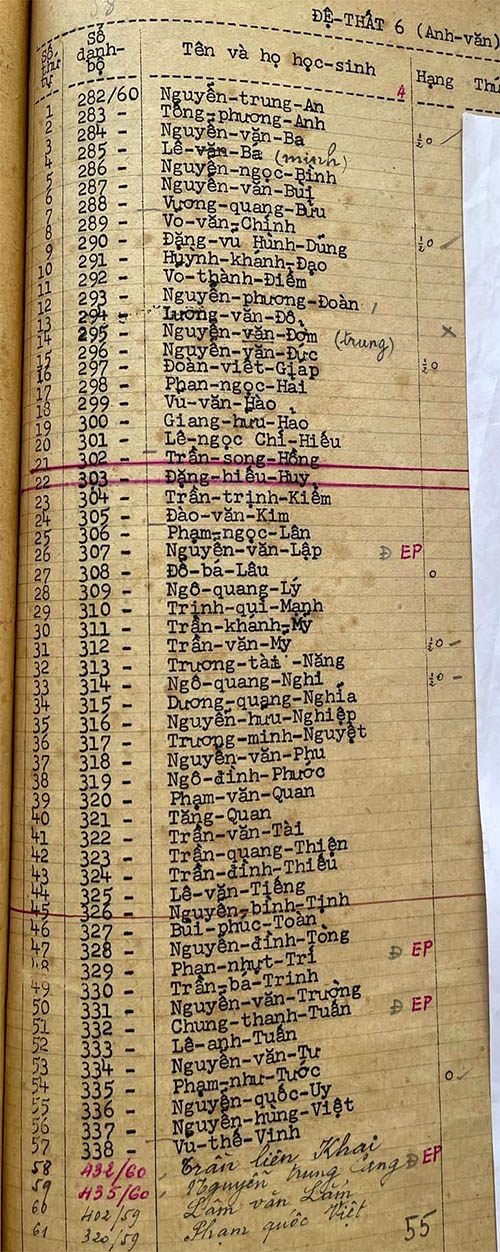 58
ĐỆ-THẤT 6 (Anh-văn)
Số thứ tự Số danh-bộ Tên và họ học-sinh Hạng Thứ
A
1 282/60 Nguyễn-trung-An
2 283 - Tống-phương-Anh
3 284 - Nguyễn-văn-Ba ½0
4 285 - Lê-văn-Ba (minh)
5 286 - Nguyễn-ngọc-Bỉnh
6 287 - Nguyễn-văn-Bùi
7 288 - Vương-quang-Bửu
8 289 - Vo-văn-Chính
9 290 - Đặng-vũ Hùnh-Dũng ½0
10 291 - Huỳnh-khánh-Đạo
11 292 - Vo-thành-Điểm
12 293 - Nguyễn-phương-Đoàn
13 294 - Lường-văn-Đô x
14 295 - Nguyễn-văn-Đợm (trung)
15 296 - Nguyễn-văn-Đức
16 297 - Đoàn-viết-Giáp ½0
17 298 - Phan-ngọc-Hải
18 299 - Vu-văn-Hào
19 300 - Giang-hưu-Hạo
20 301 - Lê-ngọc Chí-Hiếu
21 302 - Trần-song-Hồng
22 303 - Đặng-hiếu-Huy
23 304 - Trần-trịnh-Kiểm
24 305 - Đào-văn-Kim
25 306 - Phạm-ngọc-Lân
26 307 - Nguyễn-văn-Lập Đ EP
27 308 - Đỗ-bá-Lâu 0
28 309 - Ngô-quang-Lý
29 310 - Trịnh-quí-Mạnh
30 311 - Trần-khánh-Mỹ
31 312 - Trần-văn-Mỹ ½0 -
32 313 - Trương-tài -Năng
33 314 - Ngô-quang-Nghi ½0 -
34 315 - Dương-quang-Nghĩa
35 316 - Nguyễn-hưu-Nghiệp
36 317 - Trương-minh-Nguyệt
37 318 - Nguyễn-văn-Phu
38 319 - Ngô-đình-Phước
39 320 - Phạm-văn-Quan
40 321 - Tăng-Quan
41 322 - Trần-văn-Tài
42 323 - Trần-quang-Thiện
43 324 - Trần-đình-Thiều
44 325 - Lê-văn-Tiếng
45 326 - Nguyễn-bỉnh-Tịnh
46 327 - Bùi-phúc-Toàn
47 328 - Nguyễn-đình-Tòng
48 329 - Phan-nhựt-Trí Đ EP
49 330 - Trần-bá-Trinh
50 331 - Nguyễn-văn-Trường
51 332 - Chung-thanh-Tuấn Đ EP
52 333 - Lê-anh-Tuấn
53 334 - Nguyễn-văn-Tư
54 335 - Phạm-như-Tước 0
55 336 - Nguyễn-quốc-Uy
56 337 - Nguyễn-hùng-Việt
57 338 - Vu-thế-Vinh
58 432/60 Trần liên Khai
59 435/60 Nguyễn trung Cảng Đ EP
60 402/59 Lâm văn Lắm
61 320/59 Phạm quốc Việt
55